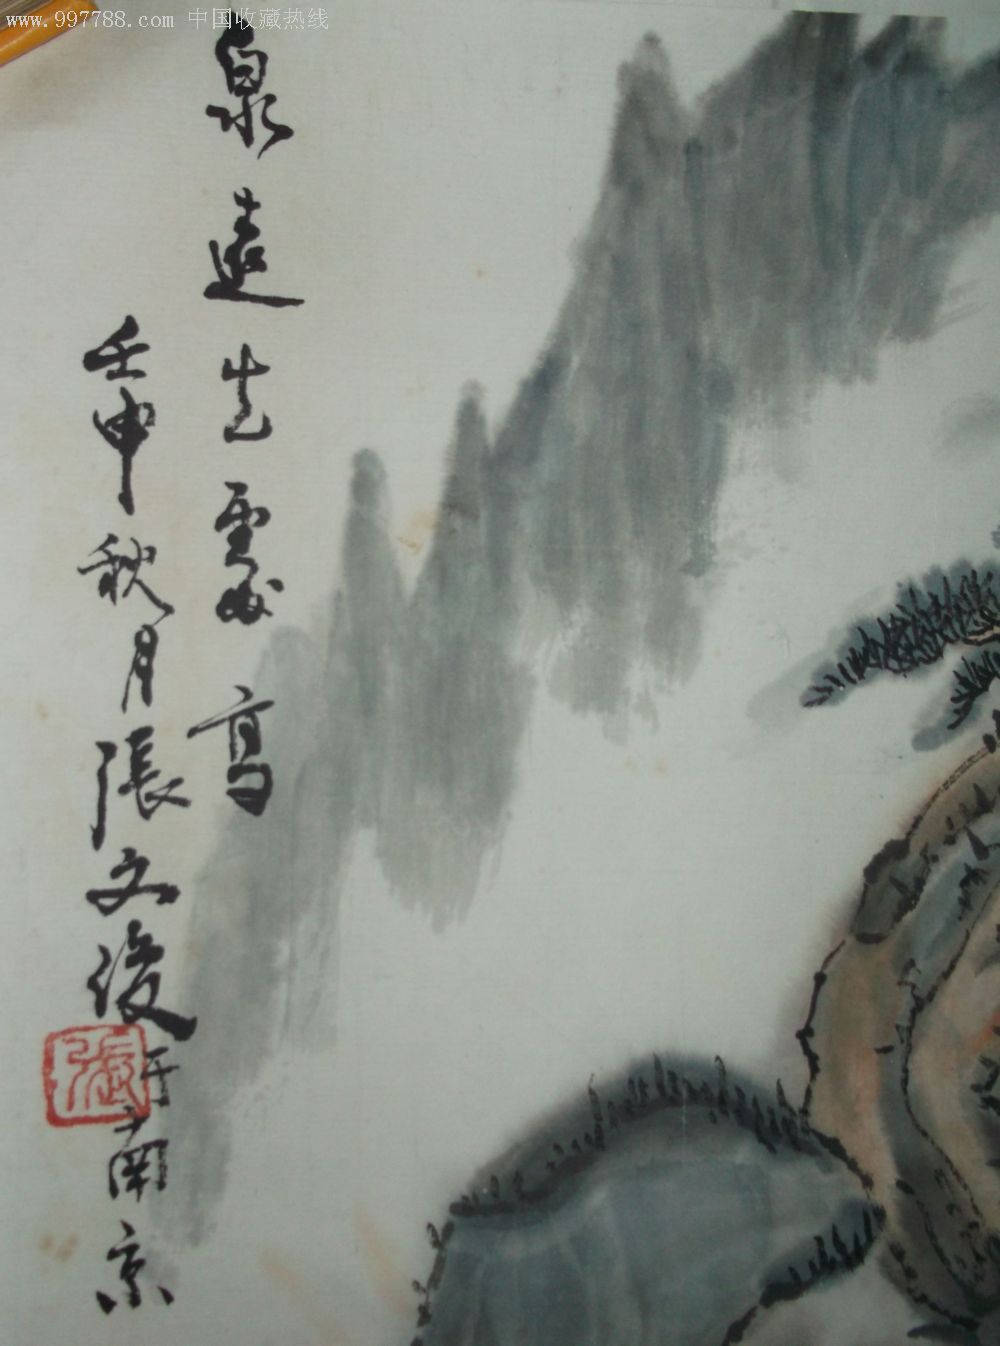 www.997788.com 中国收藏热线
泉遠生雲煙寫
壬申秋月張文俊于南京
張